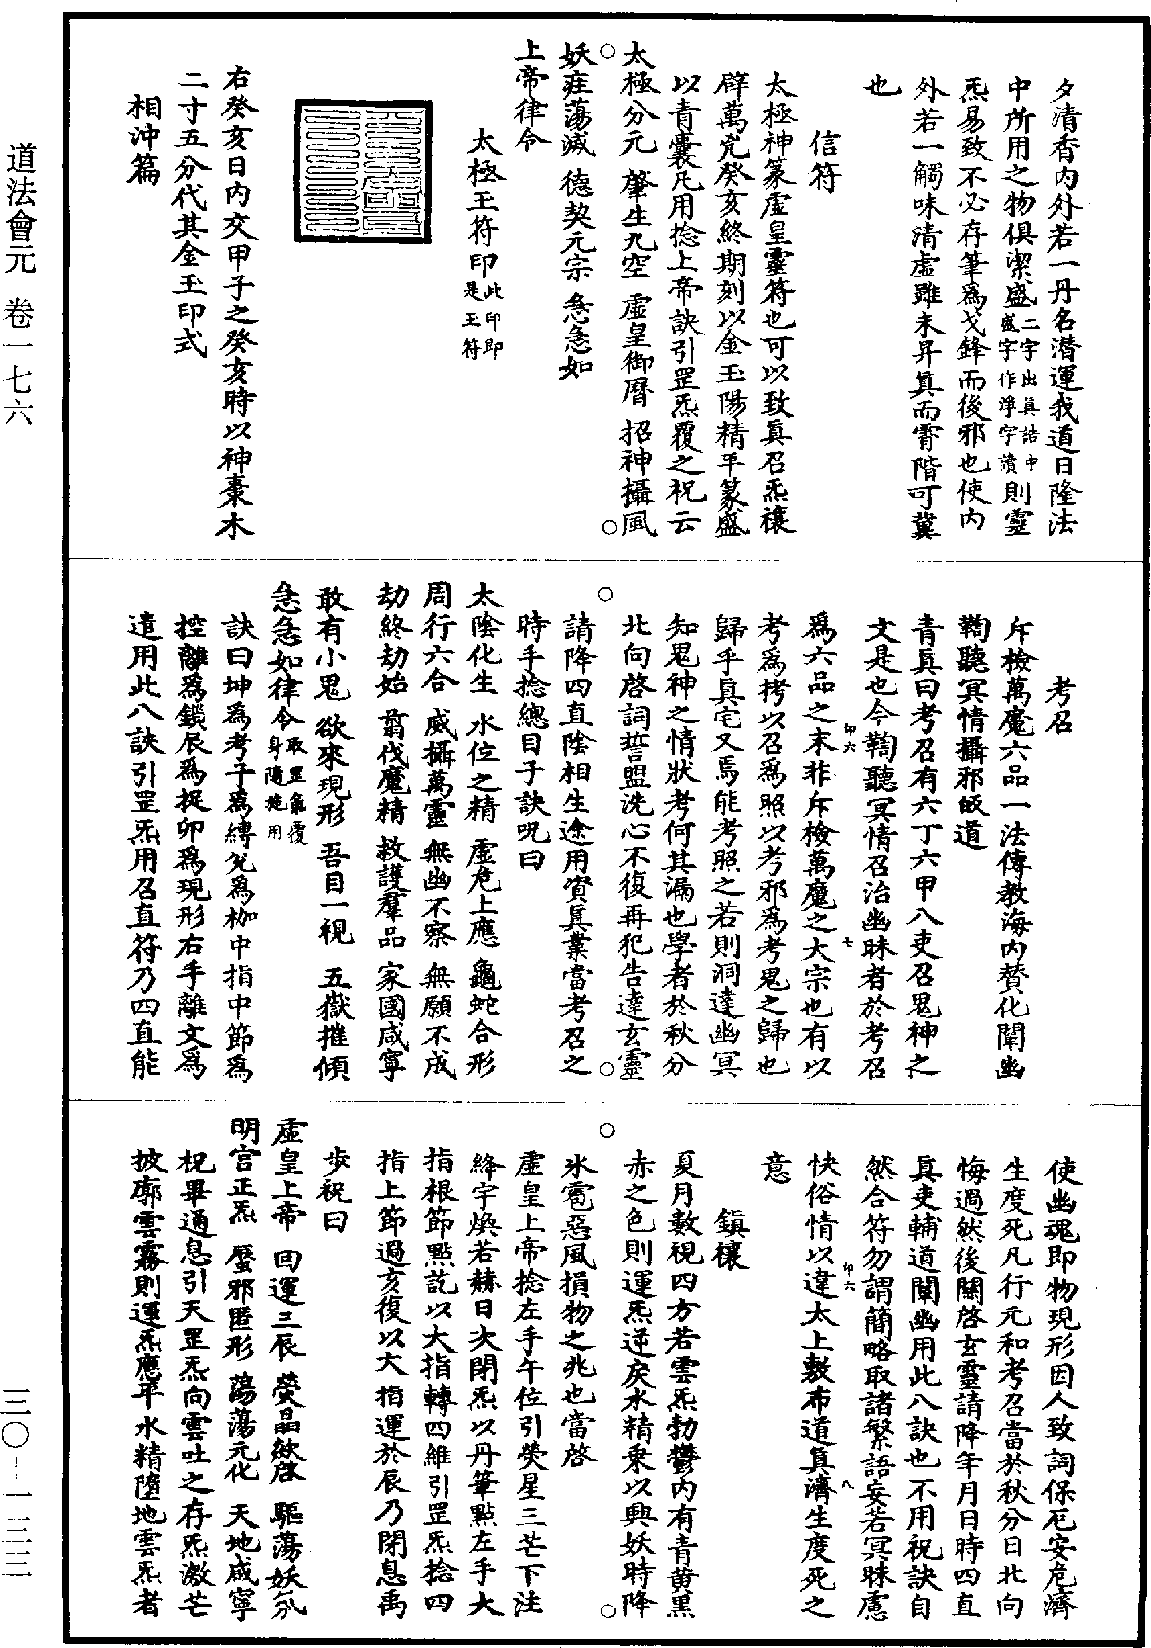 夕清香內外若一丹名潛運我道日隆法
中所用之物俱潔盛二字出眞誥中盛字作淨字讀則靈
炁易致不必存筆爲戈鋒而後邪也使內
外若一觸味清虛雖未昇眞而霄階可冀
也
信符
太極神篆虛皇靈符也可以致眞召炁禳
辟萬克癸亥終期刻以金玉陽精平篆盛
以青囊凡用捻上帝訣引罡炁覆之祝云
○太極分元 肇生九空 虛皇御曆 招神攝風○
妖痓蕩滅 德契元宗 急急如
上帝律令
太極玉符印此印即是玉符
右癸亥日內交甲子之癸亥時以神棗木
二寸五分代其金玉印式
相沖篇
考召
斥檢萬魔六品一法傳教海內贊化闡幽
鞫聽冥情攝邪皈道
青眞曰考召有六丁六甲八吏召鬼神之
文是也今鞫聽冥情召治幽昧者於考召
爲六品之末非斥檢萬魔之大宗也有以
卬六
七
考爲拷以召爲照以考邪爲考鬼之歸也
歸乎眞宅又焉能考照之若則洞達幽冥
知鬼神之情狀考何其漏也學者於秋分
○北向啓詞誓盟洗心不復再犯告達玄靈○
請降四直陰相生途用資眞業當考召之
時手捻總目子訣呪曰
太陰化生 水位之精 虛危上應 龜蛇合形
周行六合 威攝萬靈 無幽不察 無願不成
劫終劫始 翦伐魔精 救護羣品 家國咸寧
敢有小鬼 欲來現形 吾目一視 五嶽摧傾
急急如律令取罡氣覆身隨施用
訣曰坤爲考子爲縛兌爲枷中指中節爲
控離爲鎖辰爲捉卯爲現形右手離文爲
遣用此八訣引罡炁用召直符乃四直能
使幽魂即物現形因人致詞保厄安危濟
生度死凡行元和考召當於秋分日北向
悔過然後關啓玄靈請降年月日時四直
眞吏輔道闡幽用此八訣也不用祝訣自
然合符勿謂簡略取諸繁語妄若冥昧慮
卬六
八
快俗情以違太上敷布道眞濟生度死之
意
鎮禳
夏月數視四方若雲炁勃鬱內有青黃黑
○赤之色則運炁逆戾水精乘以興妖時降○
氷雹惡風損物之兆也當啓
虛皇上帝捻左手午位引熒星三芒下注
絳宇煥若赫日次閉炁以丹筆點左手大
指根節點訖以大指轉四維引罡炁捻四
指上節過亥復以大指運於辰乃閉息禹
步祝曰
虛皇上帝 回運三辰 熒晶欻啓 驅蕩妖氛
明宮正炁 蜃邪匿形 蕩蕩元化 天地咸寧
柷畢通息引天罡炁向雲吐之存炁激芒
披廓雲霧則運炁應平水精墮地雲炁者
道法會元 卷一七六
三〇–一三三